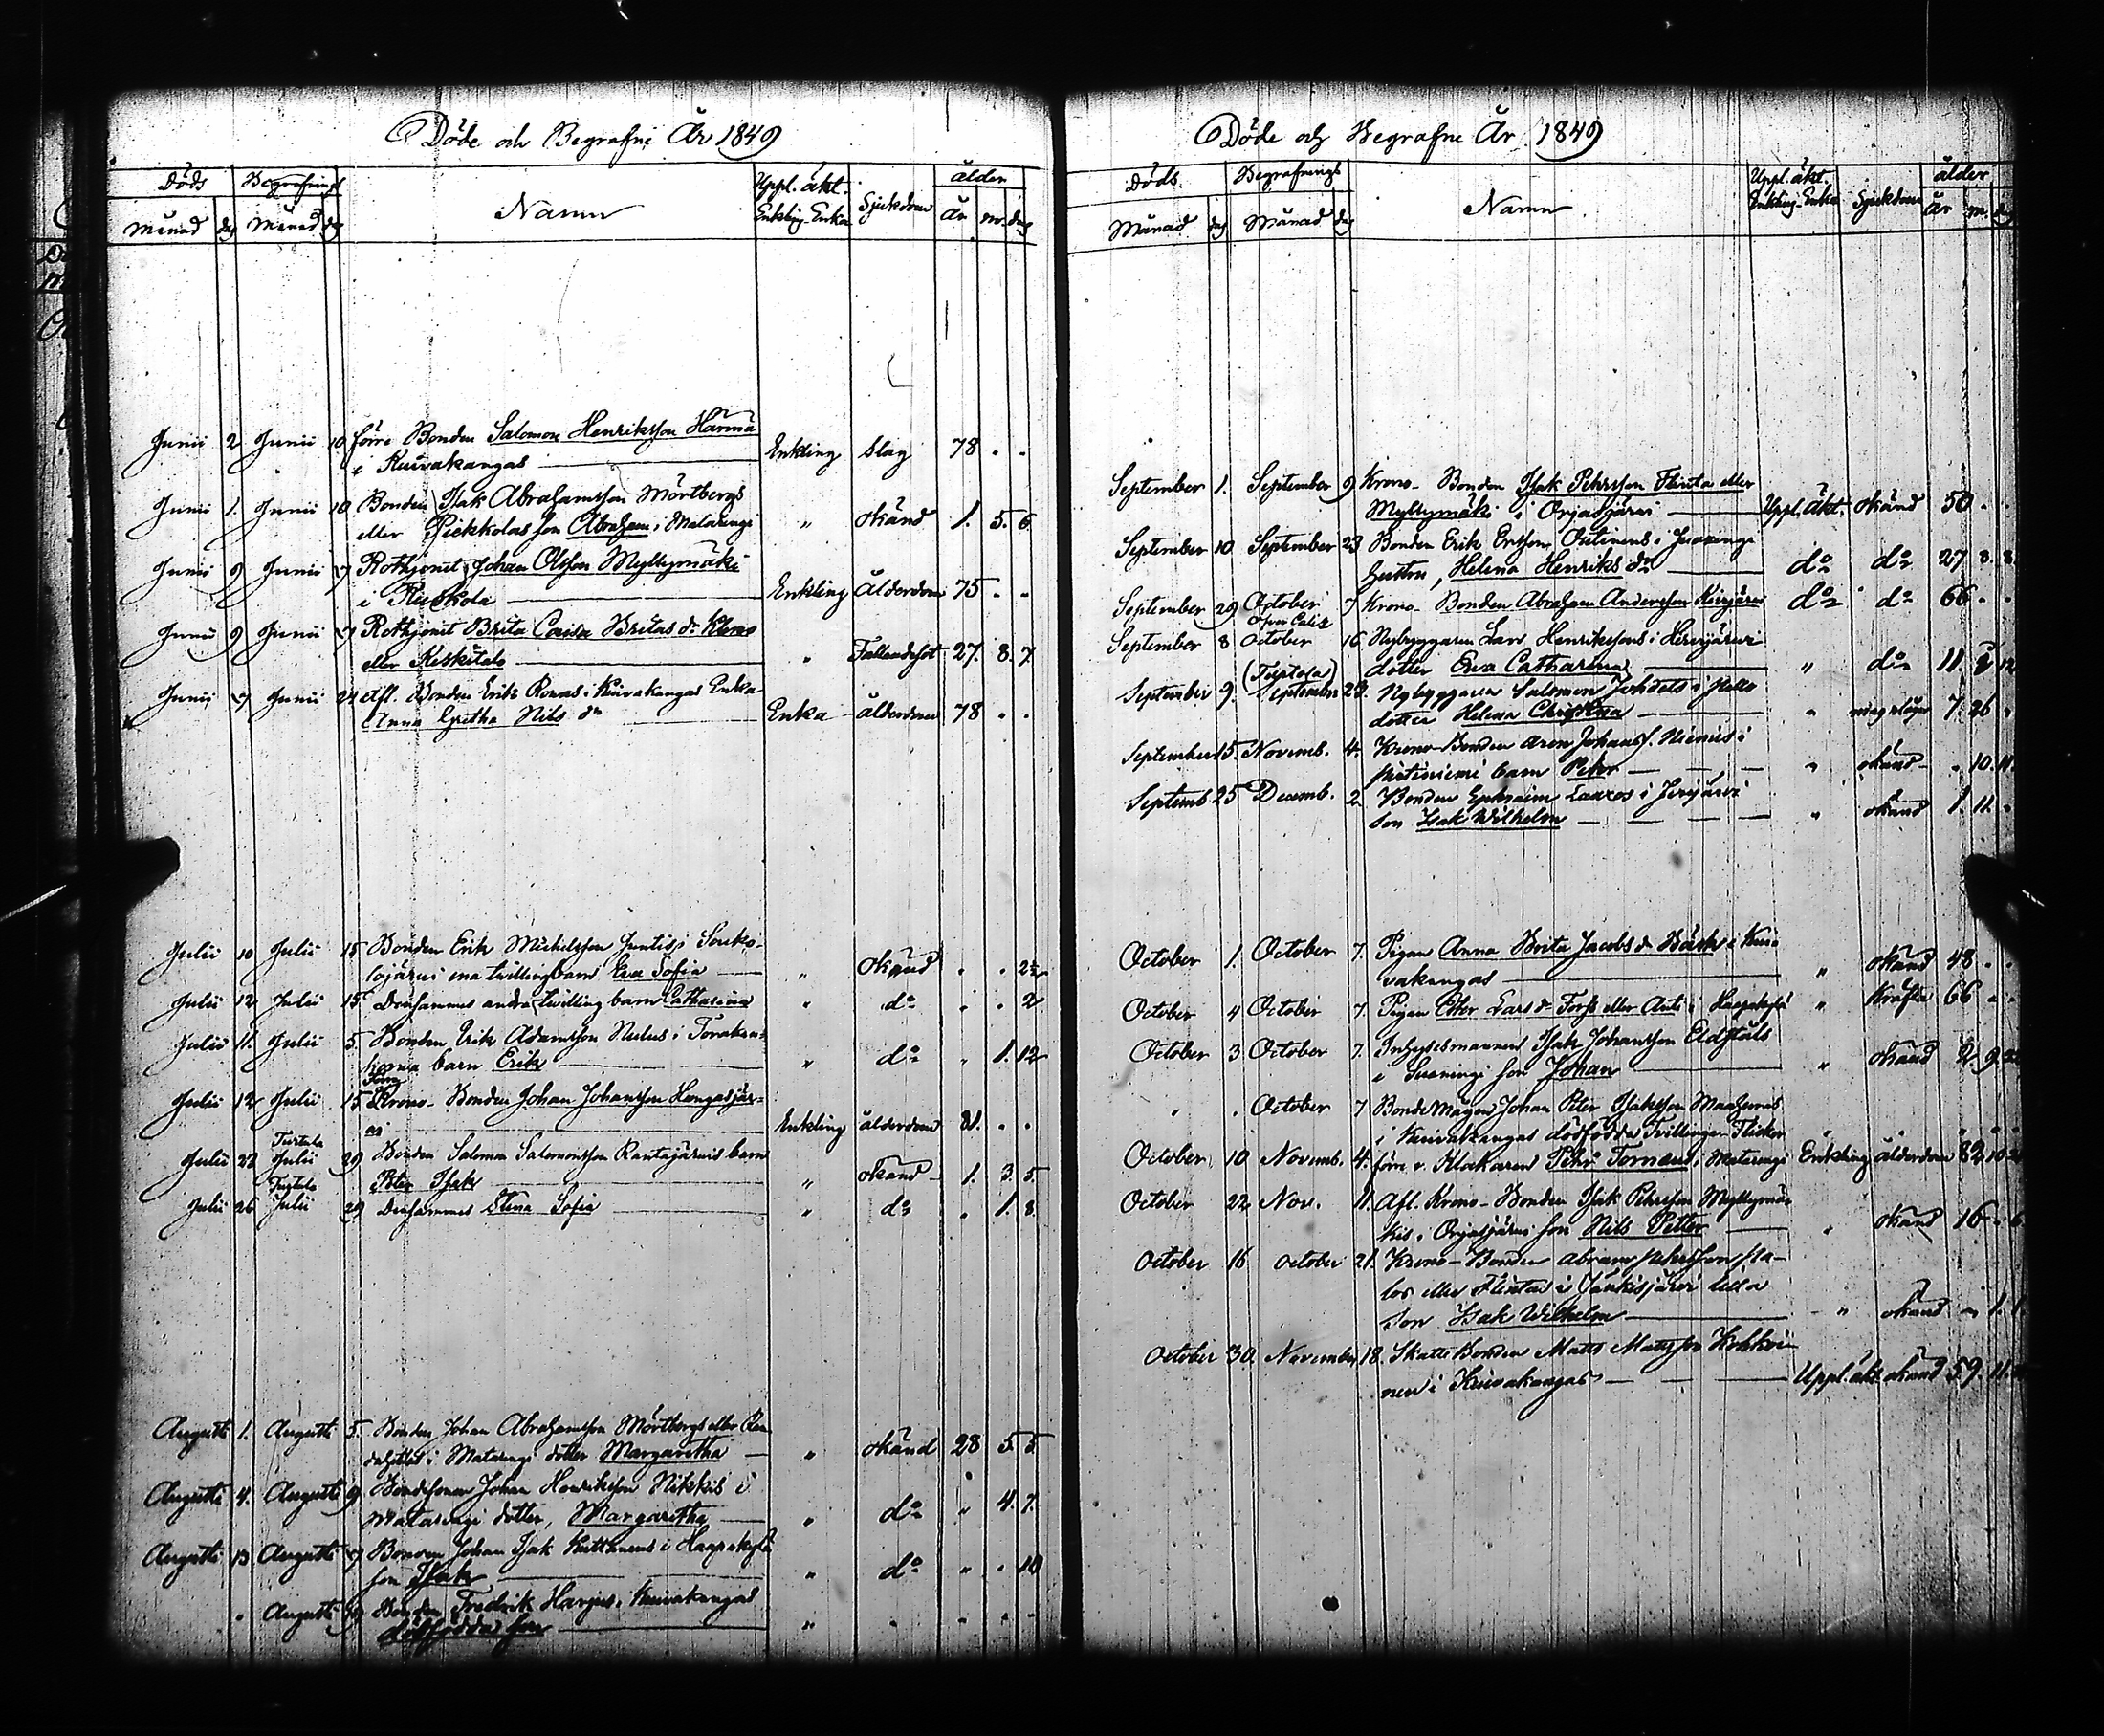 Döde och Begrafne År 1849
Döds Begrafnings Namn Uppl. äkt. Enkling-Enka Sjukdom ålder
Månad dag Månad dag År m. dag
Junii 2 Junii 10 förre Bonden Salomon Henriksson Harma
i Kuivakangas Enkling Slag 78 . .
Junii 1. Junii 10 Bonden Isak Abrahamsson Mörtbergs
eller Pickkolas son Abraham i Matarengi " okänd 1. 5. 6
Junii 9 Junii 17 Rothjonet Johan Olsson Myllymäki
i Ruskola Enkling Ålderdom 75 . .
Junii 9 Junii 17 Rothjonet Brita Caisa Britas dr
eller Keskitalo " Fallandesot 27. 8. 7.
Junii 17 Junii 24 Afl. Bonden Eriks i Kuivakangas Enka
Anna Gretha Nils dr Enka ålderdom 78 . .
Julii 10 Julii 15 Bonden Erik Michelsson Juntis i Souko-
lojärvi ena tvillingbarn Eva Sofia " okänd . . 2½
Julii 12 Julii 15 Densammes andra tvilling barn Catharina " do . . 2
Julii 11. Julii 5. Bonden Erik Adamsson i
barn Erik " do . 1. 12
Julii 12 Julii 15 Förre Krono-Bonden Johan Johansson
Enkling ålderdom 81. . .
Turtula
Julii 22 Julii 29 Bonden Salomon Salomonsson Rantajärvis barn
Peter Isak " okänd 1. 3. 5.
Turtula
Julii 26 Julii 29 Densammes Stina Sofia " do . 1. 8.
Augusti 1. Augusti 5. Bonden Johan Abrahamsson Mörtbergs eller
i Matarengi dotter Margaretha " okänd 28 5. 5.
Augusti 4. Augusti 9 Bondesonen Johan Henriksson Nikkis i
Matarengi dotter, Margaretha " do " 4. 7.
Augusti 13 Augusti Bonden Johan Isak i Haapakylä
son Isak " do " . 10
. Augusti 19 Bonden Fredrik Harjus i Kuivakangas
dödfödda son " . . . .
Döde och Begrafne År 1849
Döds. Begrafnings Namn. Uppl. äkt. Enkling-Enka Sjukdom ålder
Månad dag Månad dag År m. dag
September 1. September 9 Krono-Bonden Isak Pehrsson Flinta eller
Myllymäki i Orjasjärvi Uppl. äkt. okänd 50 . .
September 10 September 23 Bonden Erik Ersson i Juoxengi
hustru, Helena Henriks dr do do 27 8. 8.
September 29 October 7 Krono-Bonden Abraham Andersson do do 66 . .
September 8 October 16 Nybyggaren Lars Henrikssons i
dotter Eva Catharina " do 11. 12
(Turtola)
September 9. September 23. Nybyggaren Salomon i Pello
dotter Helena Christina " 7. 26 .
September 15. Novemb. 4. Krono-Bonden Aron Johanss. Niemis i
Pirtiniemi barn Pehr " okänd " 10. 11.
Septemb 25 Decemb. 2 Bonden Ephraim i
son Isak Wilhelm " okänd 1. 11. .
October 1. October 7. Pigan Anna Brita Jacobs dr Bäck i Kui-
vakangas " okänd 48 . .
October 4 October 7. Pigan Lars dr Forss eller Anti i Haapakylä " Kräfta 66 . .
October 3 October 7. Inhysesmannen Isak Johansson Eldståls
i son Johan " okänd 2. 9.
" . October 7 Bondemågen Johan Peter Isaksson
i Kuivakangas dödfödda Tvillingar Flickor
October 10 Novemb. 4. förre v. Klockaren Pehr Tornæus i Matarengi Enkling ålderdom 82 10
October 22 Nov. 11. Afl. Krono-Bonden Isak Pehrsson Myllymä-
kis i Orjasjärvi son Nils Petter " okänd 16 .
October 16 October 21. Krono-Bonden Abram Pehrsson Pa-
los eller Flintas i Jänkisjärvi lilla
son Isak Wilhelm " okänd " 1.
October 30. November 18. Skatte Bonden Matts Mattsson
nen i Kuivakangas Uppl. äkt. okänd 59. 11.